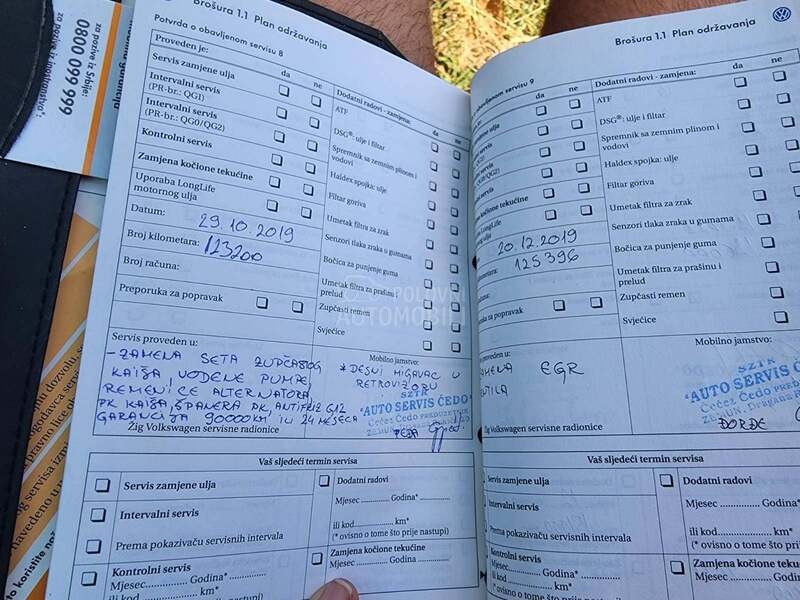 za pozive iz Srbije:
0800 099 999
za pozive iz inostranstva*:
Brošura 1.1 Plan održavanja
Potvrda o obavljenom servisu 8
Proveden je:
da ne
Servis zamjene ulja
Intervalni servis
(PR-br.: QG1)
Intervalni servis
(PR-br.: QG0/QG2)
Kontrolni servis
Zamjena kočione tekućine
Uporaba LongLife
motornog ulja
Datum: 29.10.2019
Broj kilometara: 123200
Broj računa:
Preporuka za popravak
Dodatni radovi - zamjena:
da ne
ATF
DSG®: ulje i filtar
Spremnik sa zemnim plinom i
vodovi
Haldex spojka: ulje
Filtar goriva
Umetak filtra za zrak
Senzori tlaka zraka u gumama
Bočica za punjenje guma
Umetak filtra za prašinu i
prelud
Zupčasti remen
Svjećice
Servis proveden u:
- ZAMENA SETA ZUPČASTOG
KAIŠA, VODENE PUMPE,
REMENICE ALTERNATORA
PK KAIŠA, ŠPANERA PK, ANTIFRIZ G12
GARANCIJA 90000KM ILI 24 MESECA
Žig Volkswagen servisne radionice
Mobilno jamstvo:
* DESNI MIGAVAC U
RETROVIZORU
SZTR
'AUTO SERVIS ČEDO'
Čečez Čedo PREDUZETNIK
Vaš sljedeći termin servisa
Servis zamjene ulja
Intervalni servis
Prema pokazivaču servisnih intervala
Kontrolni servis
Mjesec.............. Godina*..............
ili kod.................... km*
Dodatni radovi
Mjesec .............. Godina*..............
ili kod.................... km*
(* ovisno o tome što prije nastupi)
Zamjena kočione tekućine
Mjesec.............. Godina*..............
Brošura 1.1 Plan održavanja
obavljenom servisu 9
da ne
20.12.2019
125396
Dodatni radovi - zamjena:
ATF
DSG®: ulje i filtar
Spremnik sa zemnim plinom i
vodovi
Haldex spojka: ulje
Filtar goriva
Umetak filtra za zrak
Senzori tlaka zraka u gumama
Bočica za punjenje guma
Umetak filtra za prašinu i
prelud
Zupčasti remen
Svjećice
Mobilno jamstvo:
EGR
SZTR
'AUTO SERVIS ČEDO'
Čečez Čedo PREDUZETNIK
ĐORĐE
Žig Volkswagen servisne radionice
Vaš sljedeći termin servisa
Servis zamjene ulja
Intervalni servis
Prema pokazivaču servisnih intervala
Kontrolni servis
Mjesec.............. Godina*..............
ili kod.................... km*
Dodatni radovi
Mjesec .............. Godina*..............
ili kod.................... km*
(* ovisno o tome što prije
Zamjena kočione tekućine
POLOVNI
AUTOMOBILI